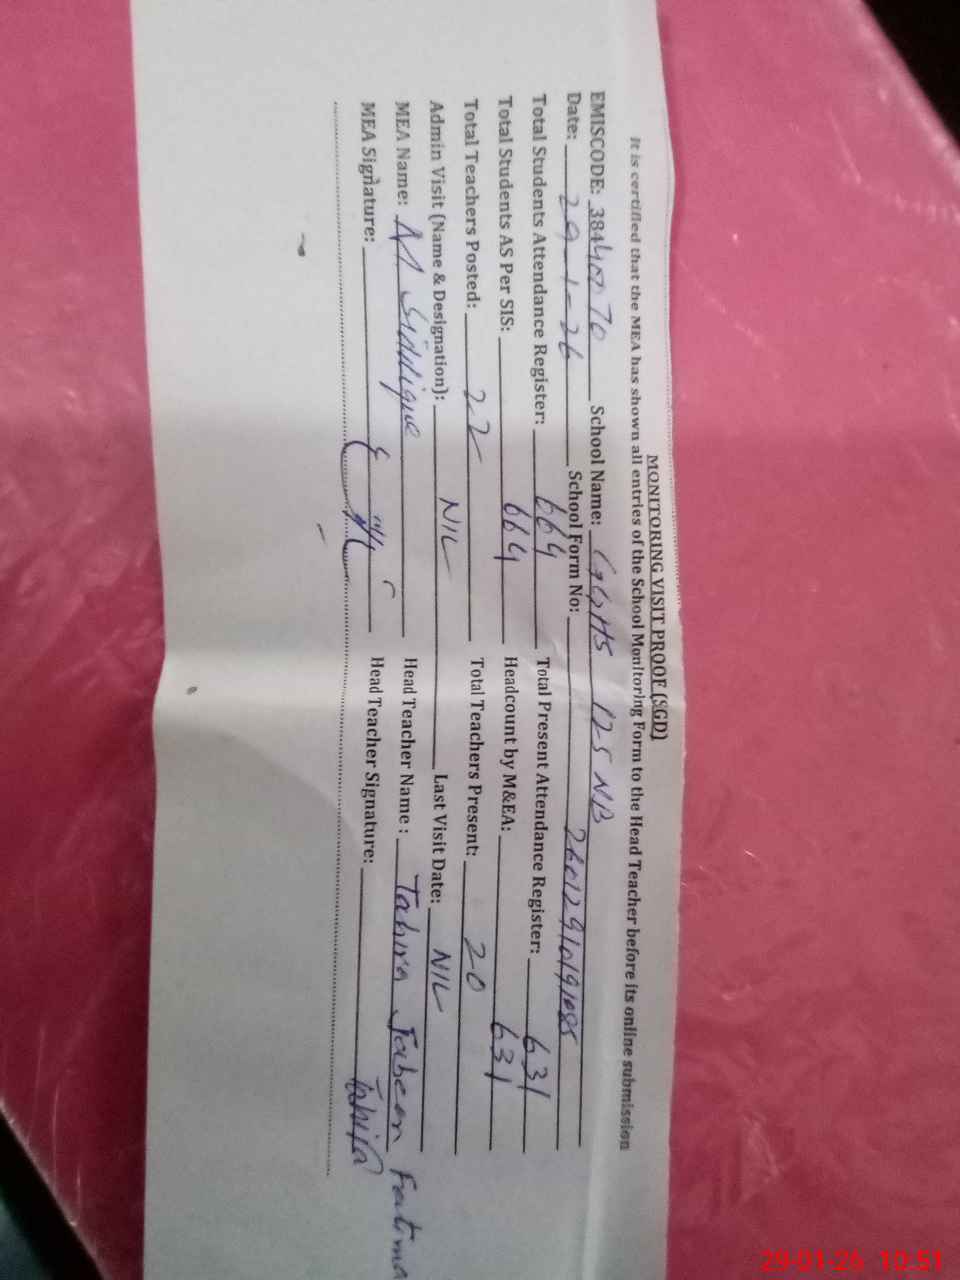 MONITORING VISIT PROOF (SGD)
It is certified that the MEA has shown all entries of the School Monitoring Form to the Head Teacher before its online submission
EMISCODE: 38440070 School Name: GGHS 125 NB
Date: 29-1-26 School Form No:
Total Students Attendance Register: 664 Total Present Attendance Register: 631
Total Students AS Per SIS: 664 Headcount by M&EA: 631
Total Teachers Posted: 22 Total Teachers Present: 20
Admin Visit (Name & Designation): NIL Last Visit Date: NIL
MEA Name: M Siddique Head Teacher Name: Tahira Jabeen Fatima
MEA Signature: Head Teacher Signature: Tahira
29-01-26 10:51